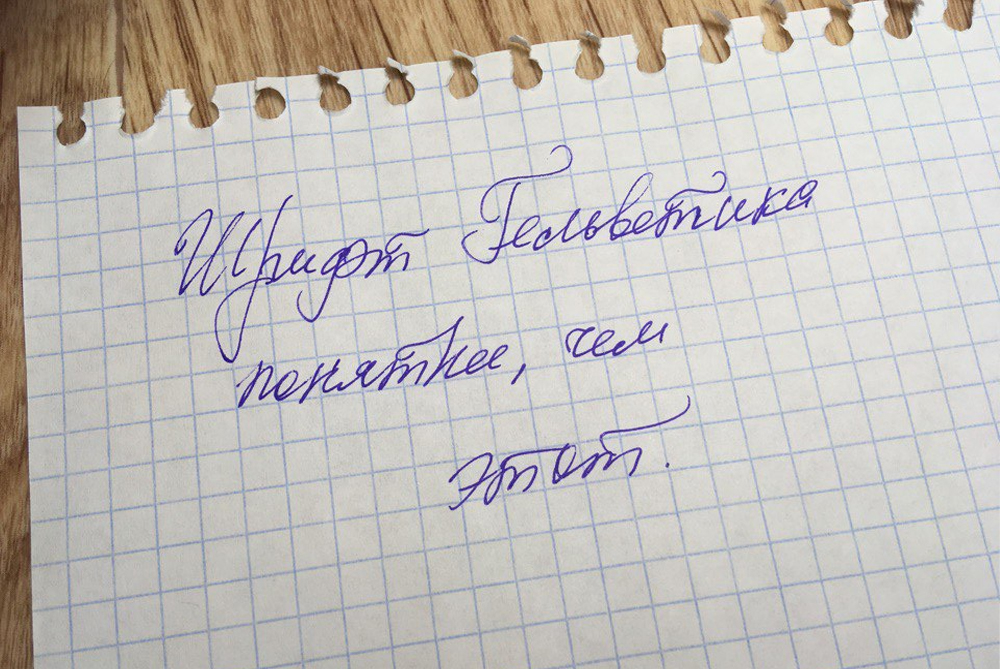 Шрифт Гельветика
понятнее, чем
этот.